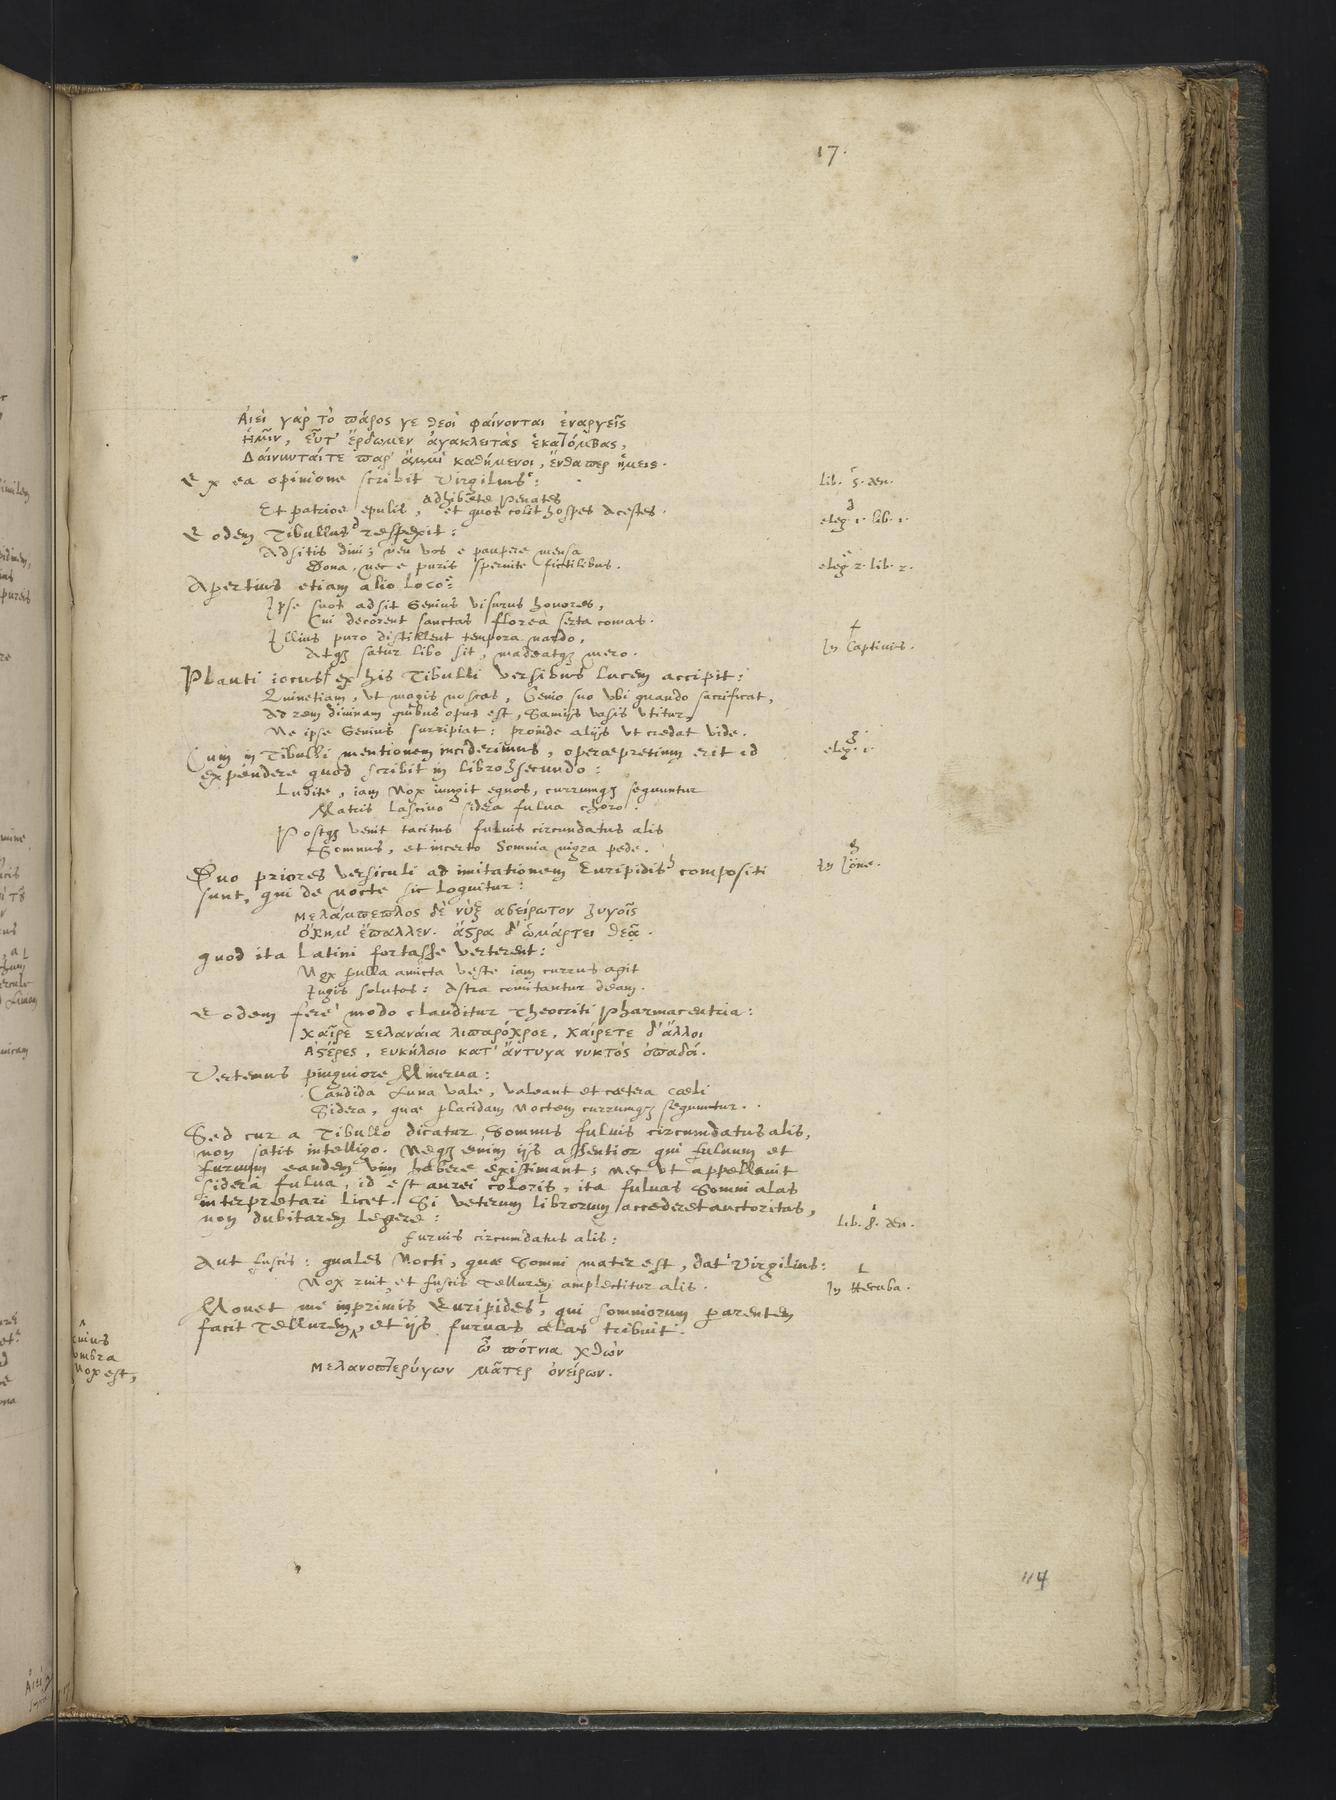 17.
Αἰεὶ γὰρ τὸ πάρος γε θεοὶ φαίνονται ἐναργεῖς
Ἡμῖν, εὖτ' ἔρδωμεν ἀγακλειτὰς ἑκατόμβας,
Δαίνυνταίτε παρ' ἄμμι καθήμενοι, ἔνθαπερ ἡμεῖς.
Ex ea opinione scribit Virgilius c:
lib. 5. æn.
Adhibete Penates
Et patrios epulis, et quos colit hospes Acestes.
d
eleg. 1. lib. 1.
Eodem Tibullus d respexit:
Adsitis diui; neu vos e paupere mensa
Dona, nec e puris spernite fictilibus.
e
eleg. 2. lib. 2.
Apertius etiam alio loco e:
Ipse suos adsit Genius visurus honores,
Cui decorent sanctas florea serta comas.
Illius puro distillent tempora nardo,
Atqꝫ satur libo sit, madeatqꝫ mero.
f
In Captiuis.
Plauti iocus f ex his Tibulli versibus lucem accipit:
Quinetiam, vt magis noscas, Genio suo vbi quando sacrificat,
Ad rem diuinam quibus opus est, Samijs vasis vtitur,
Ne ipse Genius surripiat: proinde alijs vt credat vide.
g
eleg. 1.
Cum in Tibulli mentionem inciderimus, operæpretium erit id
expendere quod scribit in libro g secundo:
Ludite, iam Nox iungit equos, currumqꝫ sequuntur
Matris lasciuo sidera fulua choro.
Postqꝫ venit tacitus fuluis circundatus alis
Somnus, et incerto Somnia nigra pede.
h
In Jone.
Duo priores versiculi ad imitationem Euripidis h compositi
sunt, qui de nocte sic loquitur:
Μελάμπεπλος δὲ νὺξ ασείρωτον ζυγοῖς
ὄχημ' ἔπαλλεν. ἄστρα δ' ὡμάρτει θεᾷ.
quod ita Latini fortasse verterent:
Nox pulla amicta veste iam currus agit
Iugis solutos: Astra comitantur deam.
Eodem fere modo clauditur Theocriti Pharmaceutria:
Χαῖρε Σελαναία λιπαρόχροε, χαίρετε δ' ἄλλοι
Ἀστέρες, ευκήλοιο κατ' ἄντυγα νυκτὸς ὀπαδοί.
Vertemus pinguiore Minerua:
Candida Luna vale, valeant et cætera cæli
Sidera, quæ placidam Noctem currumqꝫ sequuntur.
Sed cur a Tibullo dicatur, Somnus fuluis circumdatus alis,
non satis intelligo. Neqꝫ enim ijs assentior qui fuluum et
furuum eandem vim habere existimant; nec vt appellauit
sidera fulua, id est aurei coloris, ita fuluas Somni alas
interpretari licet. Si veterum librorum accederet auctoritas,
non dubitarem legere:
furuis circumdatus alis:
i
lib. 8. æn.
Aut fuscis: quales Nocti, quæ Somni mater est, dat i Virgilius:
Nox ruit, et fuscis Tellurem amplectitur alis.
L
In Hecuba.
Mouet me inprimis Euripides L, qui somniorum parentem
facit Tellurem, et ijs furuas alas tribuit.
ὦ πότνια χθὼν
Μελανοπτερύγων μᾶτερ ὀνείρων.
umbra
Nox est,
114